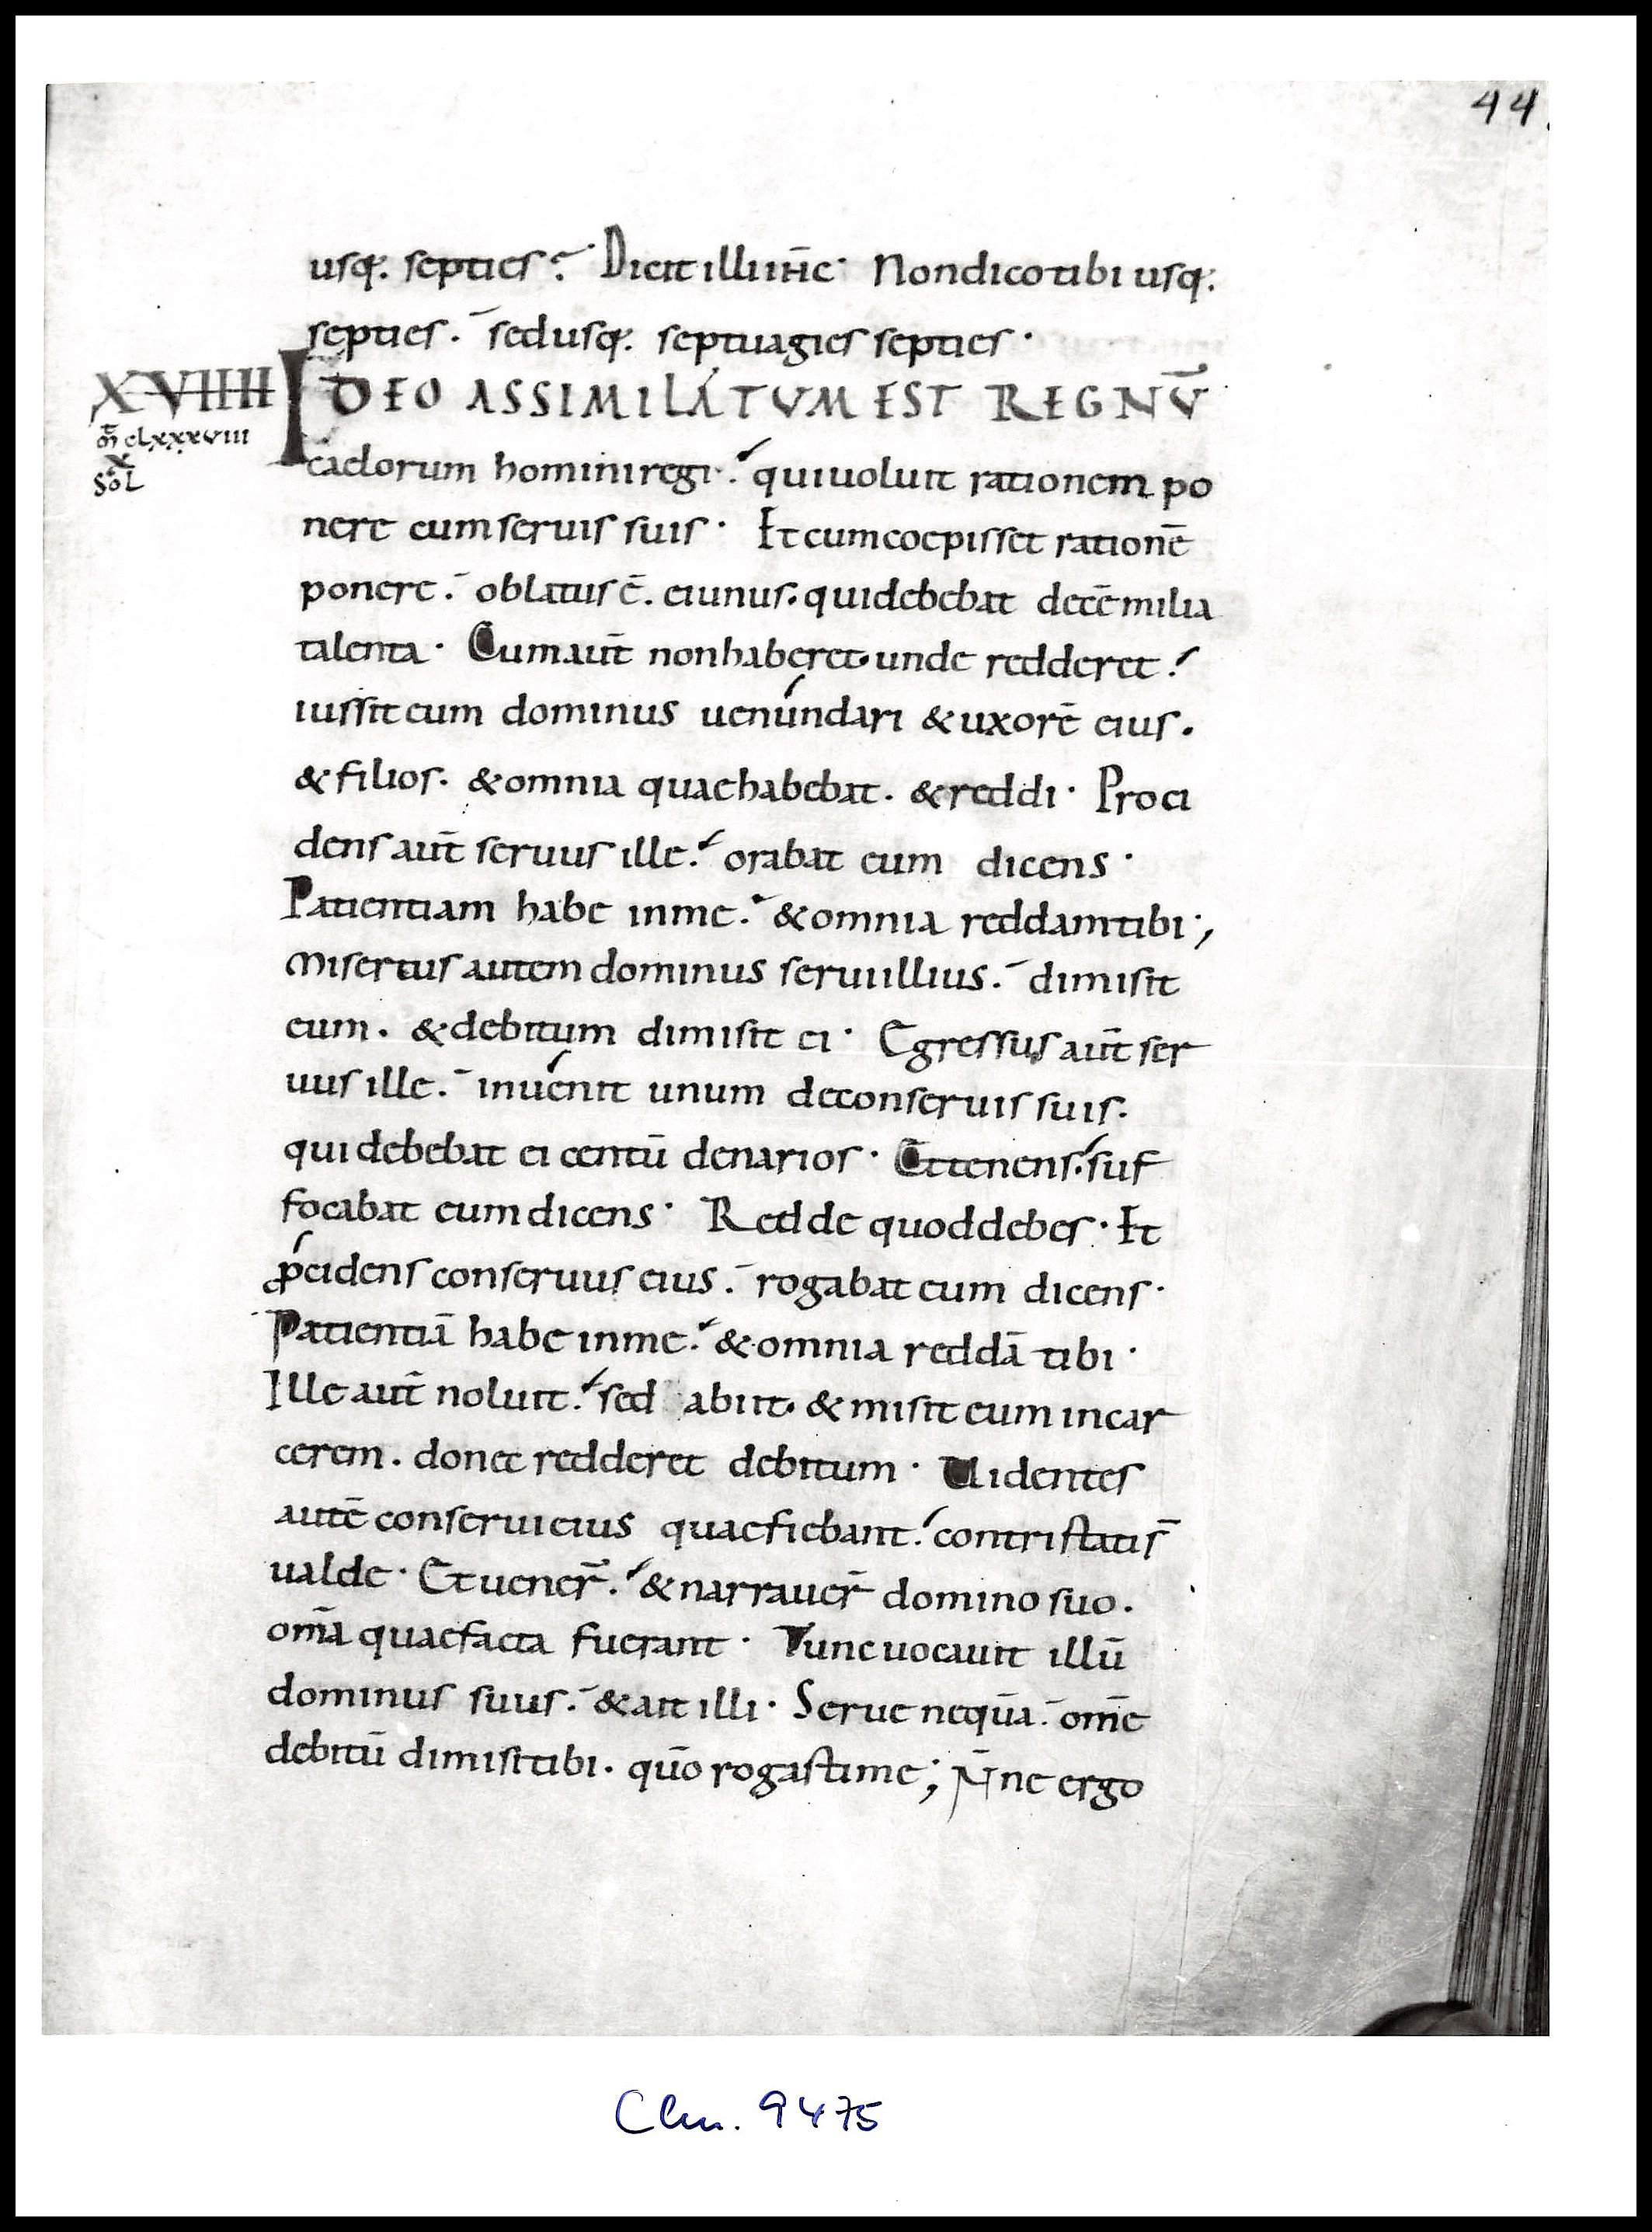 44.
usq;. septies? Dicit illi ihc· Non dico tibi usq;.
septies. sed usq;. septuagies septies·
XVIIII IDEO ASSIMILATVM EST REGNŪ
m̄ cLxxxviii
x
SoL
caelorum homini regi. qui uoluit rationem po
nere cum seruis suis· Et cum coepisset rationē
ponere. oblatus ē. ei unus. qui debebat decē milia
talenta· Cum aut̄ non haberet unde redderet.
iussit eum dominus uenundari & uxorē eius.
& filios. & omnia quae habebat. & reddi· Proci
dens aut̄ seruus ille. orabat eum dicens·
Patientiam habe in me. & omnia reddam tibi;
Misertus autem dominus serui illius. dimisit
eum. & debitum dimisit ei· Egressus aut̄ ser
uus ille. inuenit unum de conseruis suis.
qui debebat ei centū denarios· Et tenens. suf
focabat eum dicens· Redde quod debes· Et
ꝓcidens conseruus eius. rogabat eum dicens·
Patientiā habe in me. & omnia reddā tibi·
Ille aut̄ noluit. sed abiit. & misit eum in car
cerem. donec redderet debitum· Uidentes
autē conserui eius quae fiebant. contristatis̄
ualde· Et uener̄. & narrauer̄ domino suo.
om̄a quae facta fuerant· Tunc uocauit illū
dominus suus. & ait illi· Serue neqūa. om̄e
debitū dimisi tibi. qūo rogasti me; N̄ne ergo
Clm. 9475